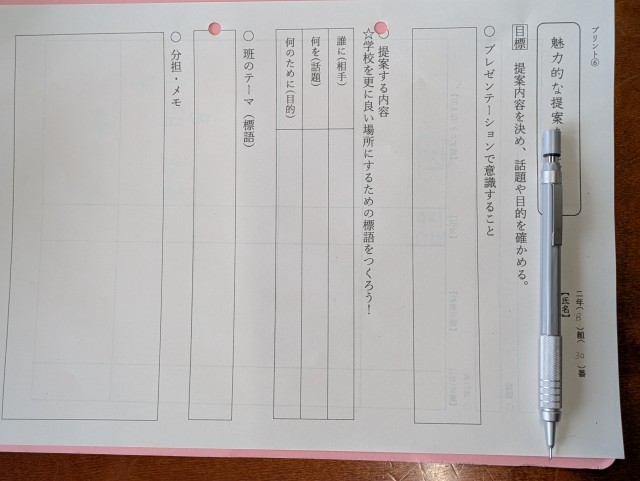 プリント⑥
魅力的な提案
二年( B )組( 30 )番
【氏名】
目標 提案内容を決め、話題や目的を確かめる。
○ プレゼンテーションで意識すること
○ 提案する内容
☆学校を更に良い場所にするための標語をつくろう！
誰に(相手)
何を(話題)
何のために(目的)
○ 班のテーマ（標語）
○ 分担・メモ